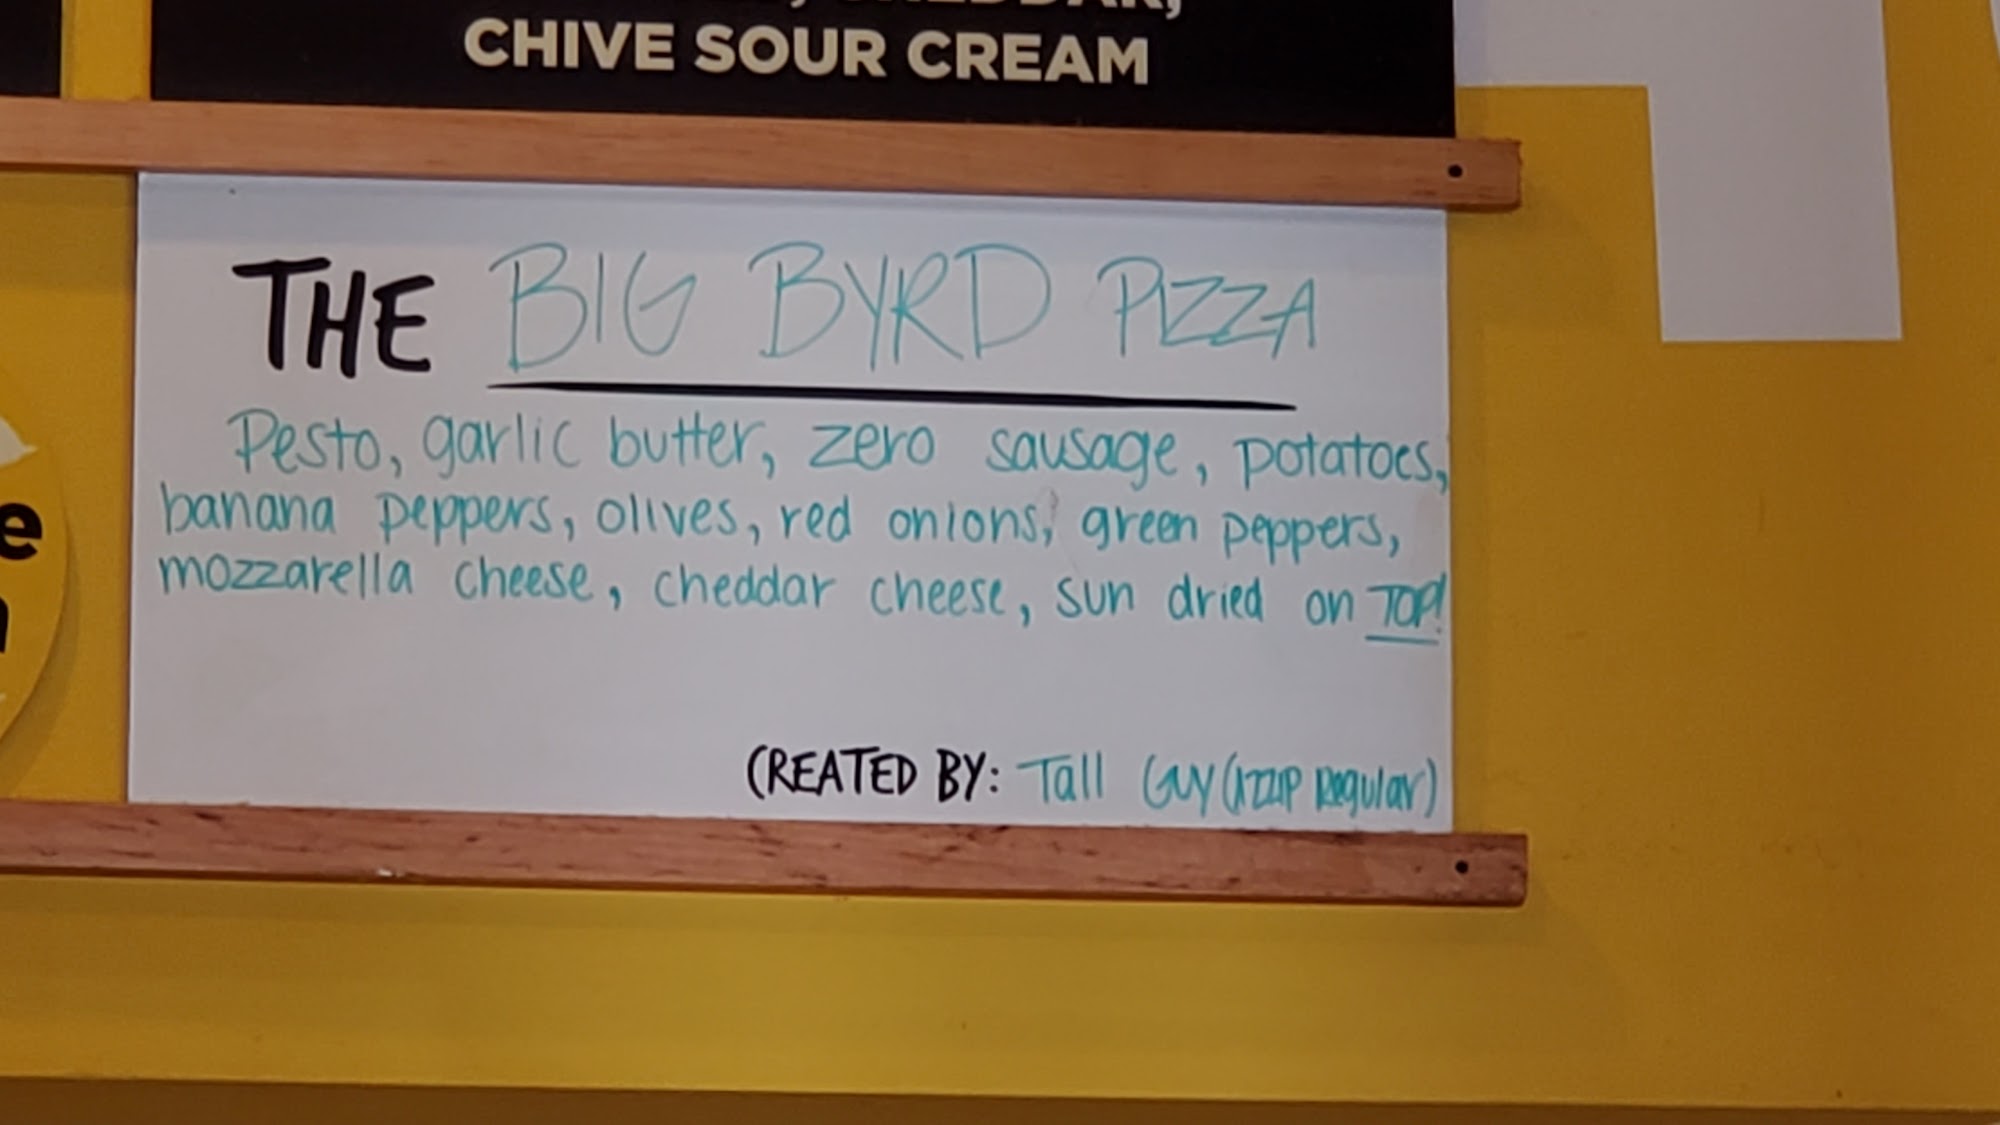 CHEDDAR,
CHIVE SOUR CREAM
THE BIG BYRD PIZZA
Pesto, garlic butter, zero sausage, potatoes,
banana peppers, olives, red onions, green peppers,
mozzarella cheese, cheddar cheese, sun dried on TOP!
CREATED BY: Tall Guy (AZZIP Regular)
e